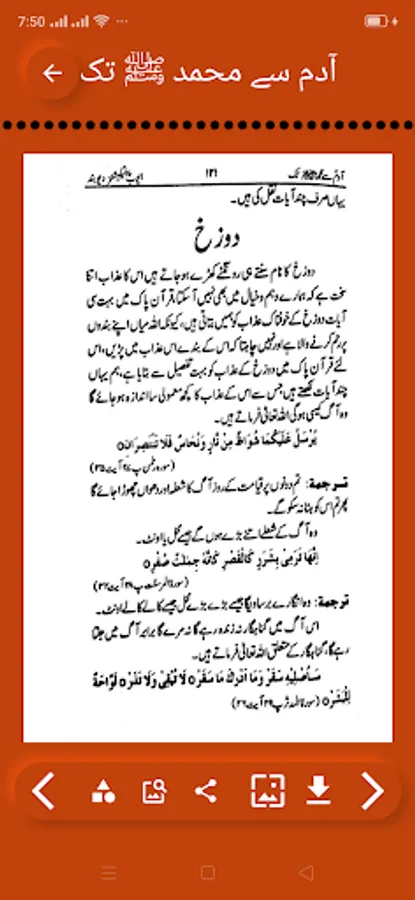 7:50
آدم سے محمد ﷺ تک
آدم سے محمد ﷺ تک ۱۲۱ ایوب پبلیکیشنز دیوبند
یہاں صرف چند آیات نقل کی ہیں۔
دوزخ
دوزخ کا نام سنتے ہی رونگٹے کھڑے ہو جاتے ہیں اس کا عذاب اتنا
سخت ہے کہ ہمارے وہم و خیال میں بھی نہیں آسکتا، قرآن پاک میں بہت سی
آیات دوزخ کے خوفناک عذاب کو ہمیں بتاتی ہیں، کیونکہ اللہ میاں اپنے بندوں
پر رحم کرنے والا ہے اور نہیں چاہتا کہ اس کے بندے اس عذاب میں پڑیں، اس
لئے قرآن پاک میں دوزخ کے عذاب کو بہت تفصیل سے بتایا ہے، ہم یہاں
چند آیات لکھتے ہیں جس سے اس کے عذاب کا کچھ معمولی سا اندازہ ہو جائے گا
وہ آگ کیسی ہوگی اللہ تعالیٰ فرماتے ہیں۔
يُرْسَلُ عَلَيْكُمَا شُوَاظٌ مِنْ نَّارٍ وَنُحَاسٌ فَلَا تَنْتَصِرَانِ○
(سورہ رحمٰن پ ۲۷ آیت ۳۵)
ترجمہ: تم دونوں پر قیامت کے روز آگ کا شعلہ اور دھواں چھوڑا جائے گا
پھر تم اس کو ہٹا نہ سکو گے۔
وہ آگ کے شعلے اتنے بڑے ہوں گے جیسے محل یا اونٹ۔
اِنَّهَا تَرْمِىْ بِشَرَرٍ كَالْقَصْرِ كَاَنَّهٗ جِمٰلَتٌ صُفْرٌ○
(سورۃ المرسلٰت پ ۲۹ آیت ۳۲)
ترجمہ: وہ انگارے برساویگا جیسے بڑے بڑے محل جیسے کالے کالے اونٹ۔
اس آگ میں گناہگار نہ زندہ رہے گا نہ مرے گا برابر آگ میں جلتا
رہے گا، گناہگار کے متعلق اللہ تعالیٰ فرماتے ہیں۔
سَاُصْلِيْهِ سَقَرَ وَمَا اَدْرٰكَ مَا سَقَرُ○ لَا تُبْقِىْ وَلَا تَذَرُ○ لَوَّاحَةٌ
لِّلْبَشَرِ○ (سورۃ المدثر پ ۲۹ آیت ۲۶)